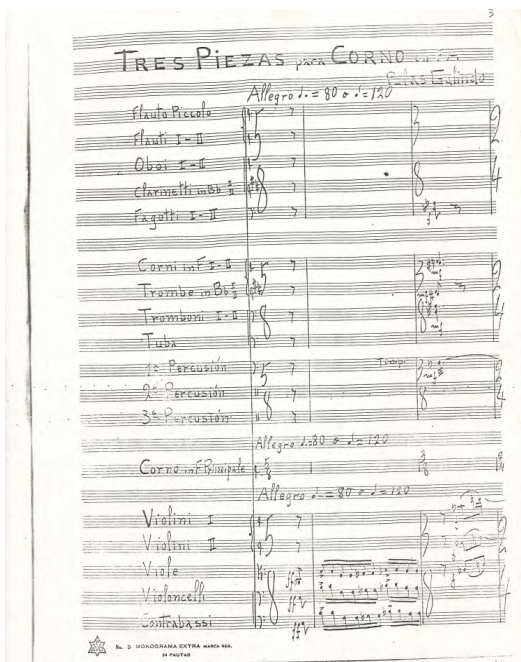 3
TRES PIEZAS para CORNO
Blas Galindo
Allegro ♩. = 80 o ♩ = 120
Flauto Piccolo
Flauti I-II
Oboi I-II
Clarinetti in Bb I II
Fagotti I-II
Corni in F I-II
Trombe in Bb I II
Tromboni I-II
Tuba
1ª Percusión
Timp.
2ª Percusión
3ª Percusión
Allegro ♩.=80 o ♩=120
Corno in F Principale
Allegro ♩. = 80 o ♩ = 120
Violini I
Violini II
Viole
Violoncelli
Contrabassi
No. D MONOGRAMA EXTRA MARCA REG.
24 PAUTAS